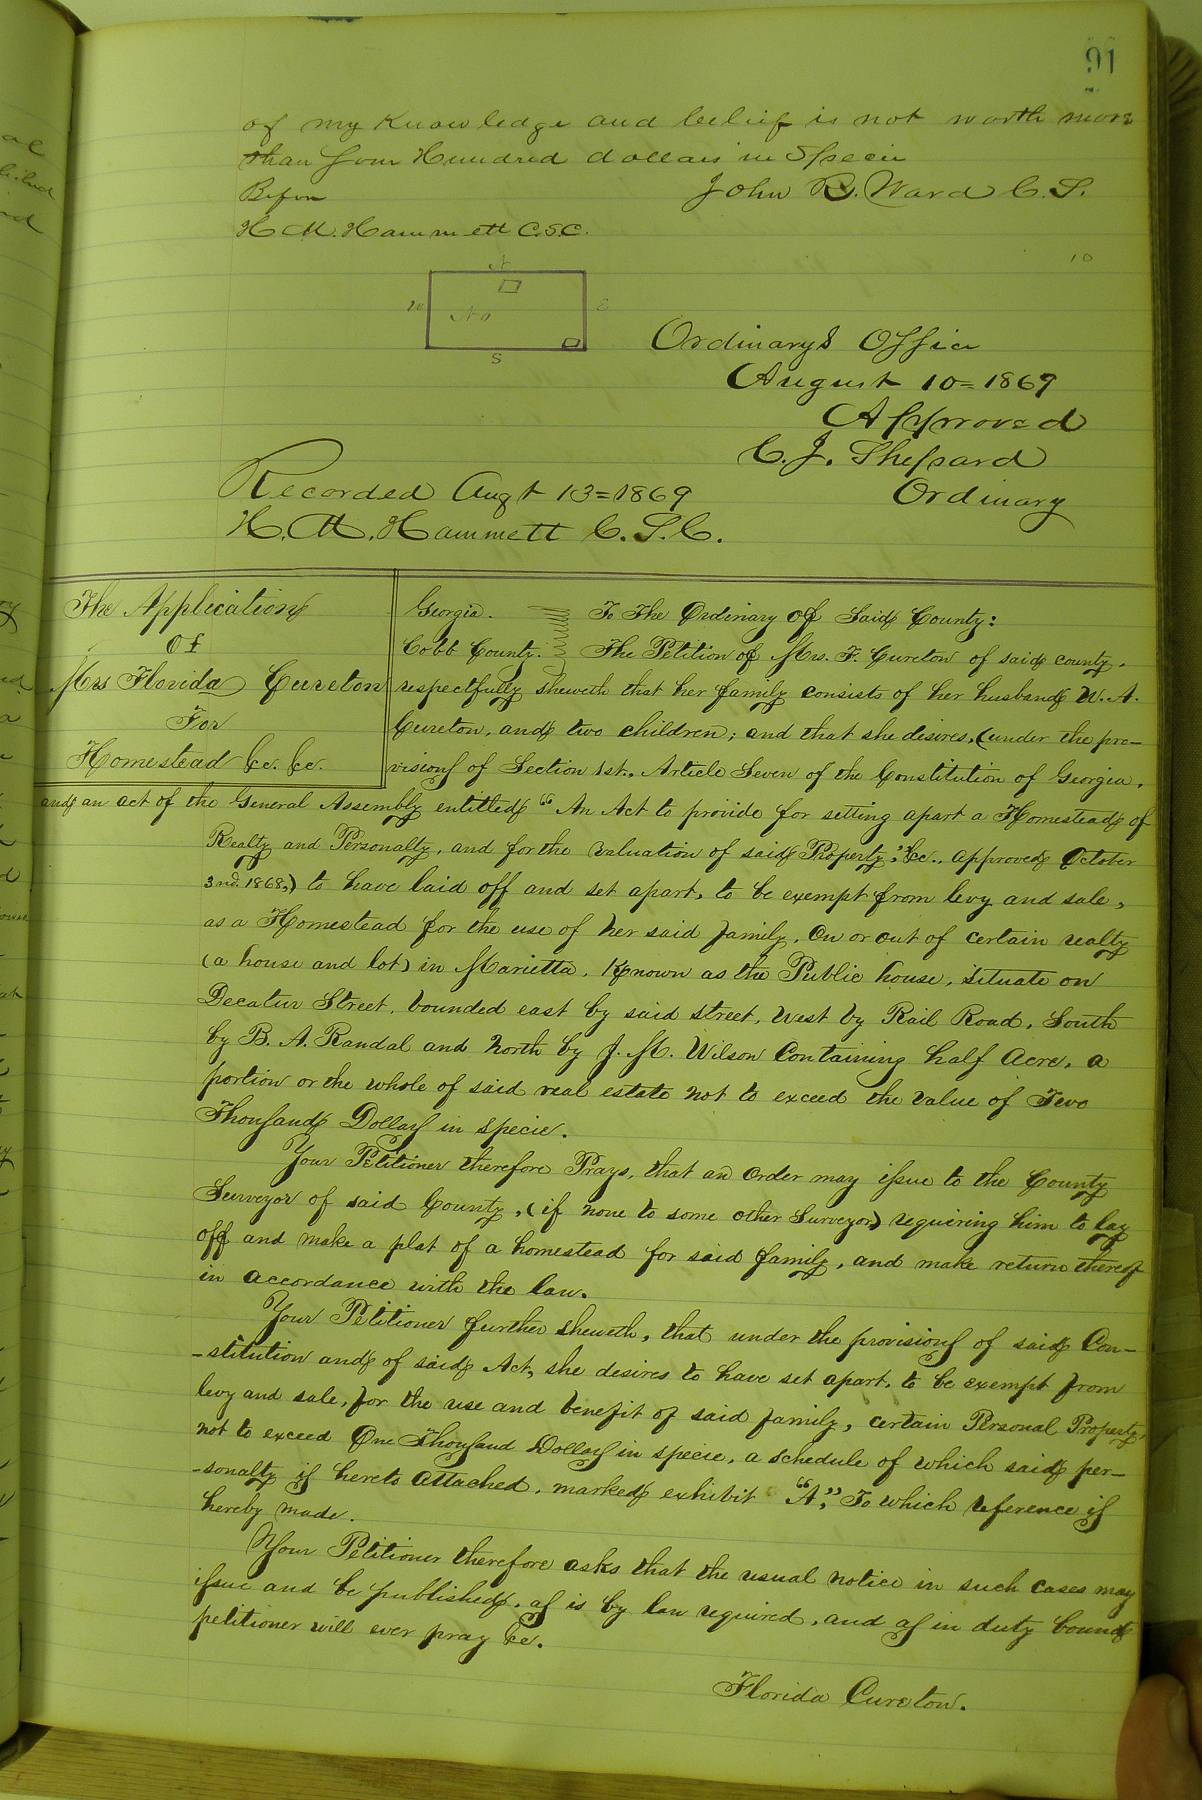 91
of my Knowledge and belief is not worth more
than four Hundred dollars in Specie
Before
John R. Ward C. S.
H. M. Hammett C.S.C.
10
N
W
No
E
S
Ordinarys Office
August 10 = 1869
Approved
C. J. Shepard
Ordinary
Recorded Augt 13 = 1869
H. M. Hammett C. S. C.
The Application
Of
Mrs Florida Cureton
For
Homestead &c. &c.
Georgia. To The Ordinary Of Said County:
Cobb County. The Petition of Mrs. F. Cureton of said county,
respectfully sheweth that her family consists of her husband W. A.
Cureton, and two children; and that she desires, (under the pro-
visions of Section 1st., Article Seven of the Constitution of Georgia,
and an act of the General Assembly entitled "An Act to provide for setting apart a Homestead of
Realty and Personalty, and for the valuation of said Property," &c., approved October
3nd. 1868,) to have laid off and set apart, to be exempt from levy and sale,
as a Homestead for the use of her said family, On or out of certain realty
(a house and lot) in Marietta, Known as the Public house, situate on
Decatur Street, bounded east by said street, West by Rail Road, South
by B. A. Randal and North by J. M. Wilson Containing half Acre, a
portion or the whole of said real estate not to exceed the value of Two
Thousand Dollars in specie.
Your Petitioner therefore Prays, that an order may issue to the County
Surveyor of said County, (if none to some other Surveyor) requiring him to lay
off and make a plat of a homestead for said family, and make return thereof
in accordance with the law.
Your Petitioner further sheweth, that under the provisions of said Con-
-stitution and of said Act, she desires to have set apart, to be exempt from
levy and sale, for the use and benefit of said family, certain Personal Property,
not to exceed One Thousand Dollars in specie, a schedule of which said per-
-sonalty is hereto attached, marked exhibit "A," To which reference is
hereby made.
Your Petitioner therefore asks that the usual notice in such cases may
issue and be published, as is by law required, and as in duty bound
petitioner will ever pray &c.
Florida Cureton.